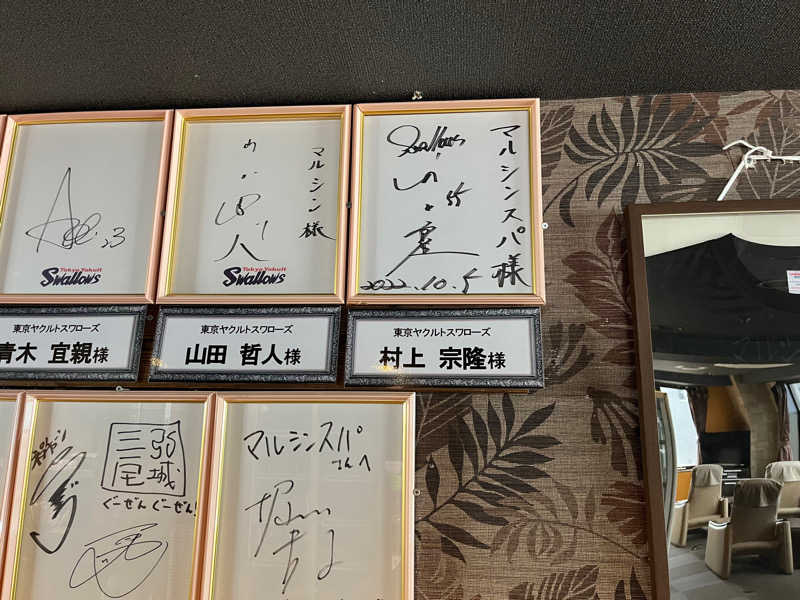 23
Tokyo Yakult
Swallows
東京ヤクルトスワローズ
青木 宣親様
マルシン様
Tokyo Yakult
Swallows
東京ヤクルトスワローズ
山田 哲人様
マルシンスパ様
Swallows
55
2022.10.5
東京ヤクルトスワローズ
村上 宗隆様
三宅
弥城
ぐーぜんぐーぜん!
マルシンスパ
さんへ